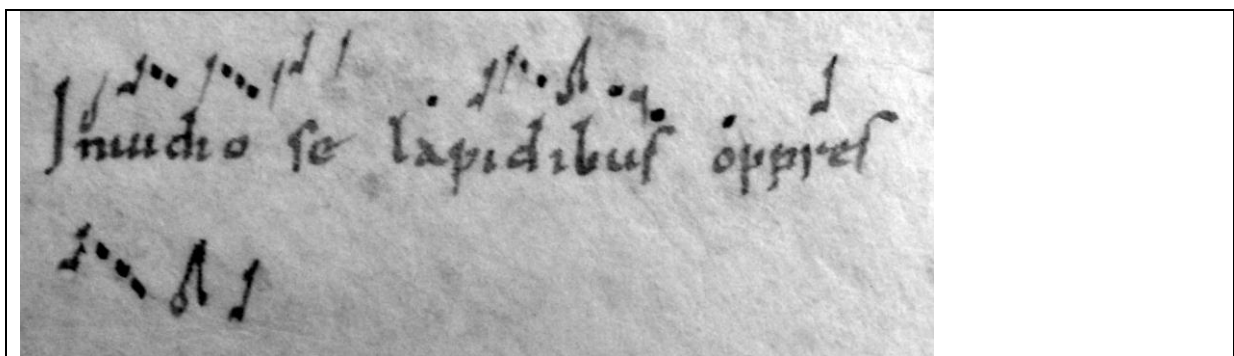 Inuidiose lapidibus oppres